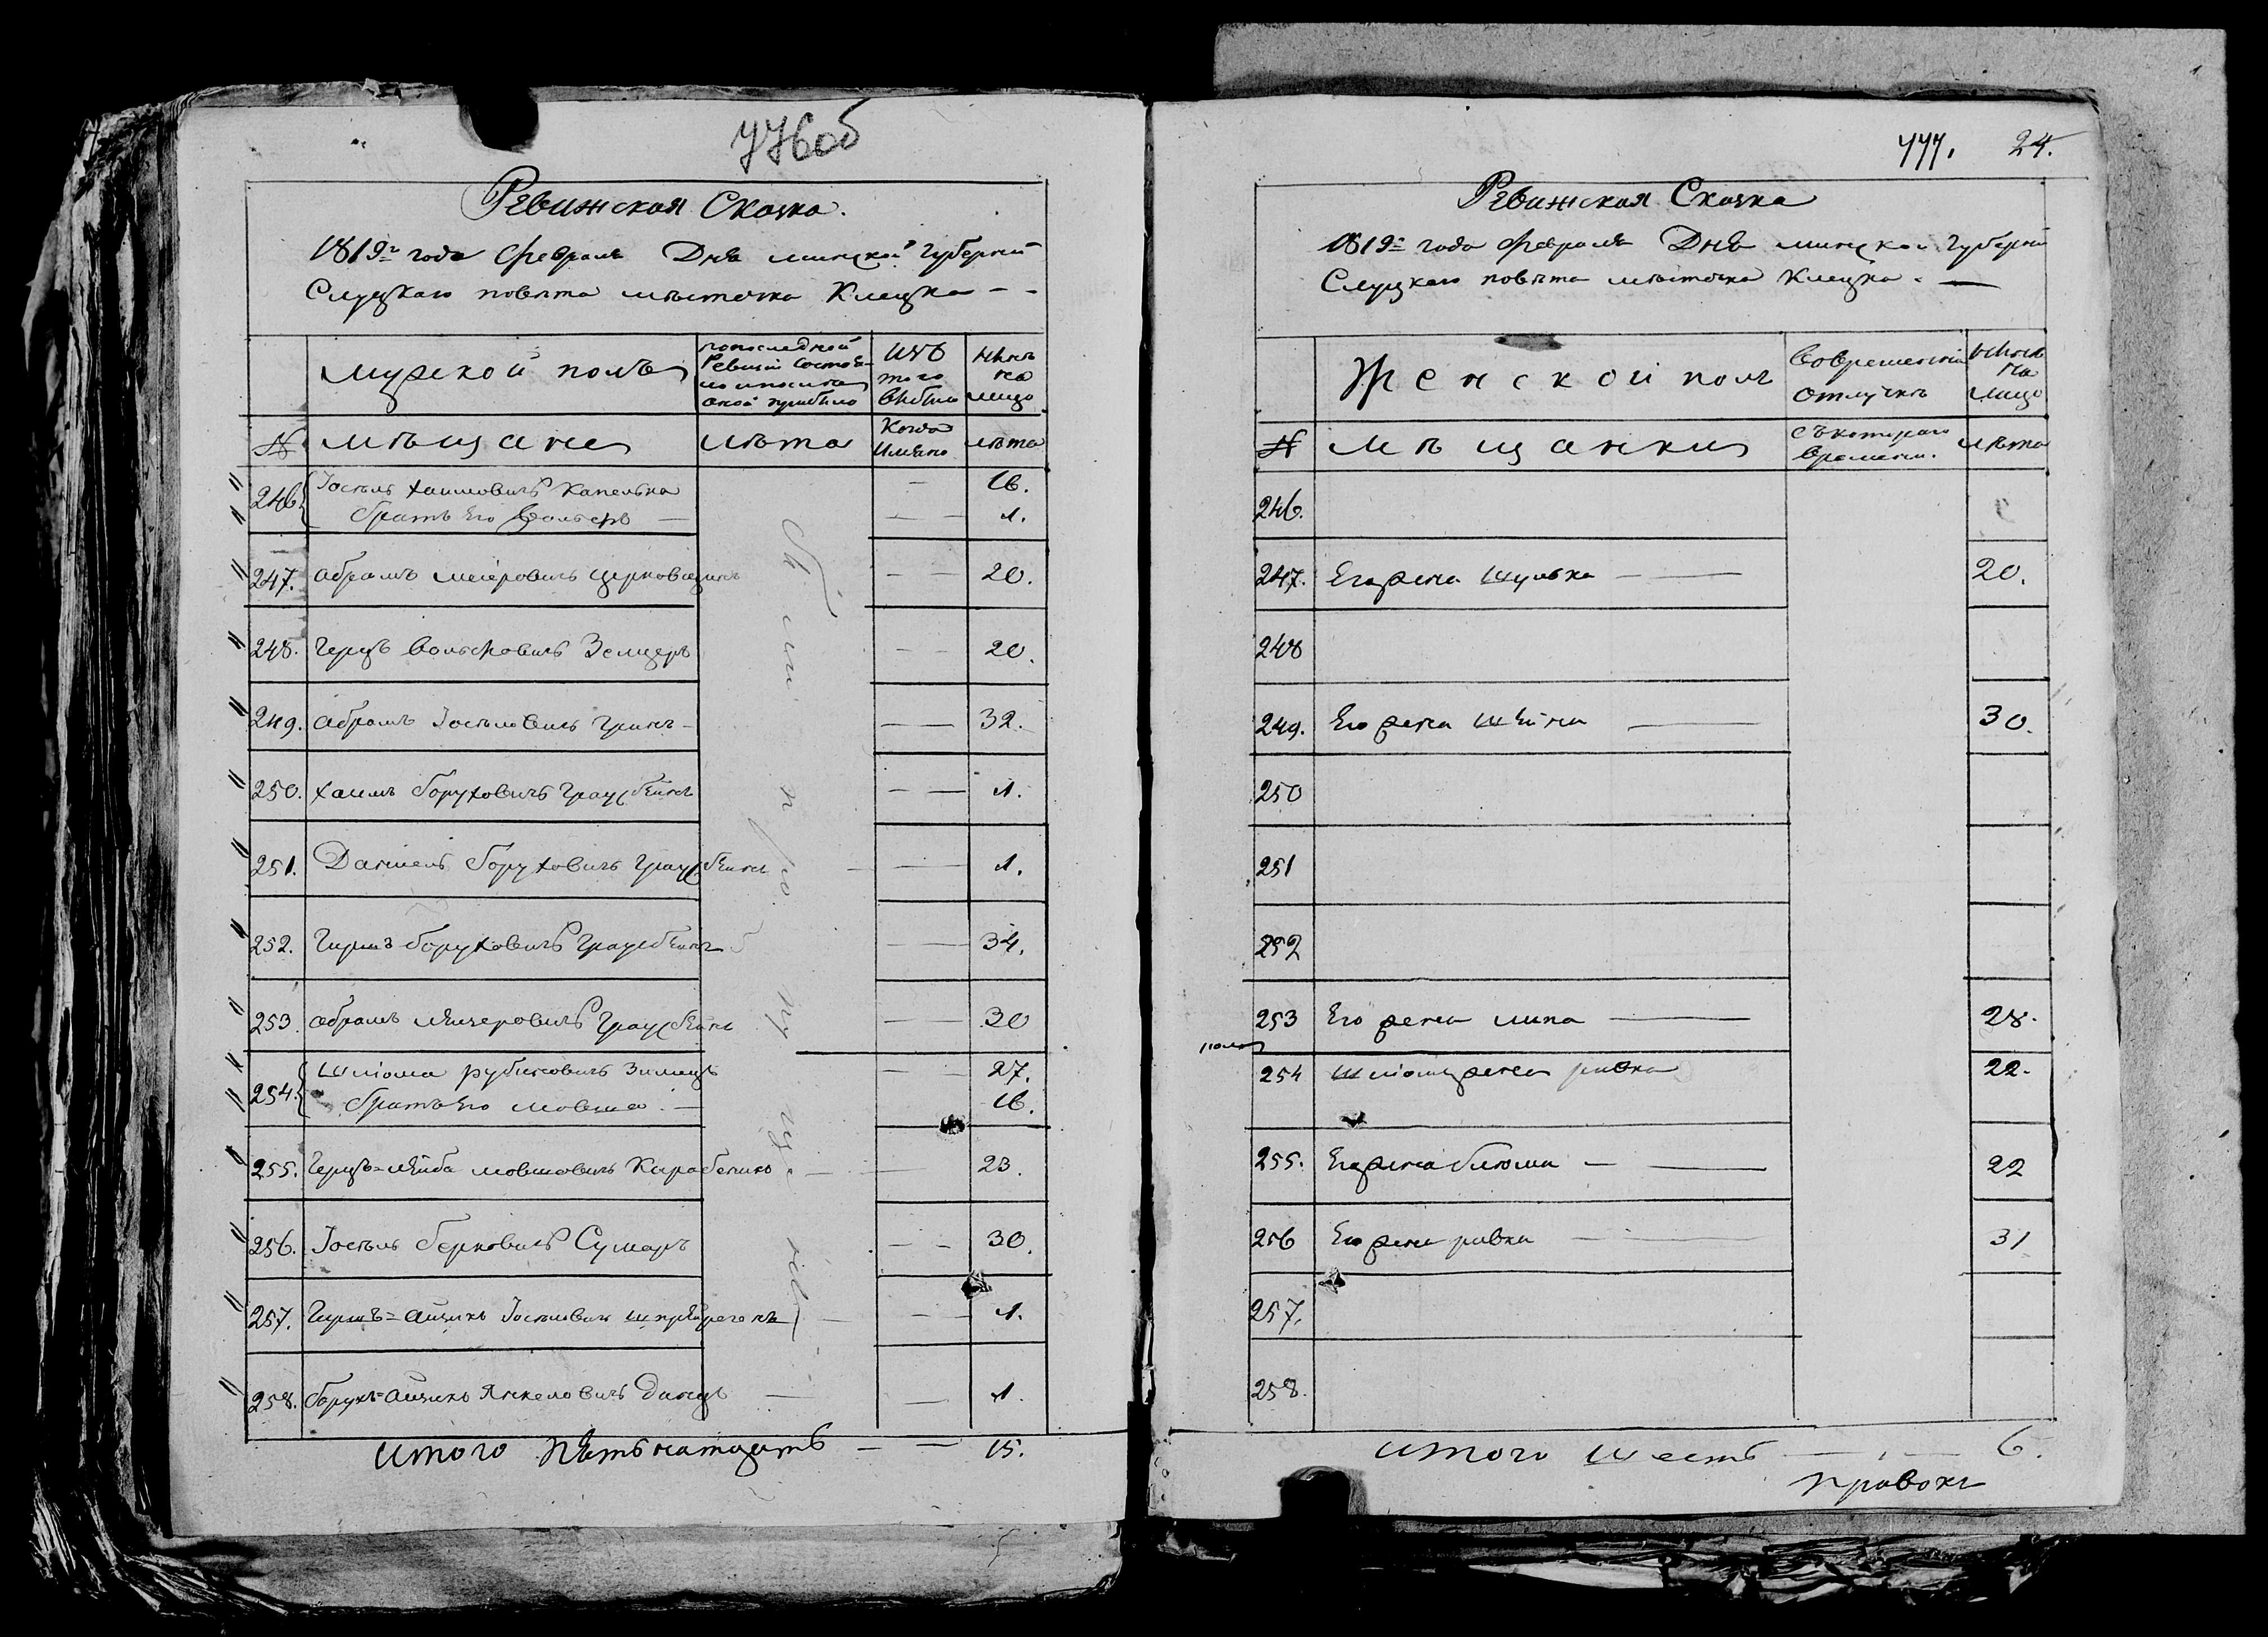 776об
Ревижская Сказка.
1819го года Февраля Дня минской губернии
Слуцкаго повѣта мѣстечка Клецка - -
мужской полъ
попоследной Ревизіи состояло
изъ того выбыло
нынѣ на лицо
№ мѣщане лѣта Когда имянно лѣта
246. Іосель Хаимовичъ Капелька — 16.
братъ Его Вольфъ — — — 1.
247. абрамъ меіеровичъ — — 20.
248. Герцъ Вольфовичъ Зелцеръ — — 20.
249. абрамъ Іоселовичъ Гринъ — — — 32.
250. Хаимъ боруховичъ Граусбеинъ — — 1.
251. Даніель боруховичъ Граусбеинъ — — 1.
252. Гиршъ боруховичъ Граусбеинъ — — 34.
253. абрамъ лейзеровичъ Граусбеинъ — — 30
254. Шліома рубиновичъ — — 27.
братъ Его мовша — — 16.
255. Герцъ=лейба мовшовичъ — — 23.
256. Іосель берковичъ Сумаръ — — 30.
257. Гиршъ=аицикъ Іоселовичъ — — 1.
258. борухъ=аицикъ Янкеловичъ Данцъ — — 1.
были пропущены
итого пѣтьнатцать — — 15.
777. 24.
Ревижская Сказка
1819го года Февраля Дня минской губерніи
Слуцкаго повѣта мѣстечка Клецка - —
Женской полъ
вовременной отлучкѣ
нынѣ на лицо
№ мѣщанки съкотораго времени. лѣта
246.
247. Егожена Шулька — — 20.
248
249. Его жена Шейна — 30.
250
251
252
253 Его жена — 28.
254 Шліомыжена ривка 22.
255. Егожена блюма — — 22
256 Его жена ривка — — 31
257.
258.
итого шесть — — 6.